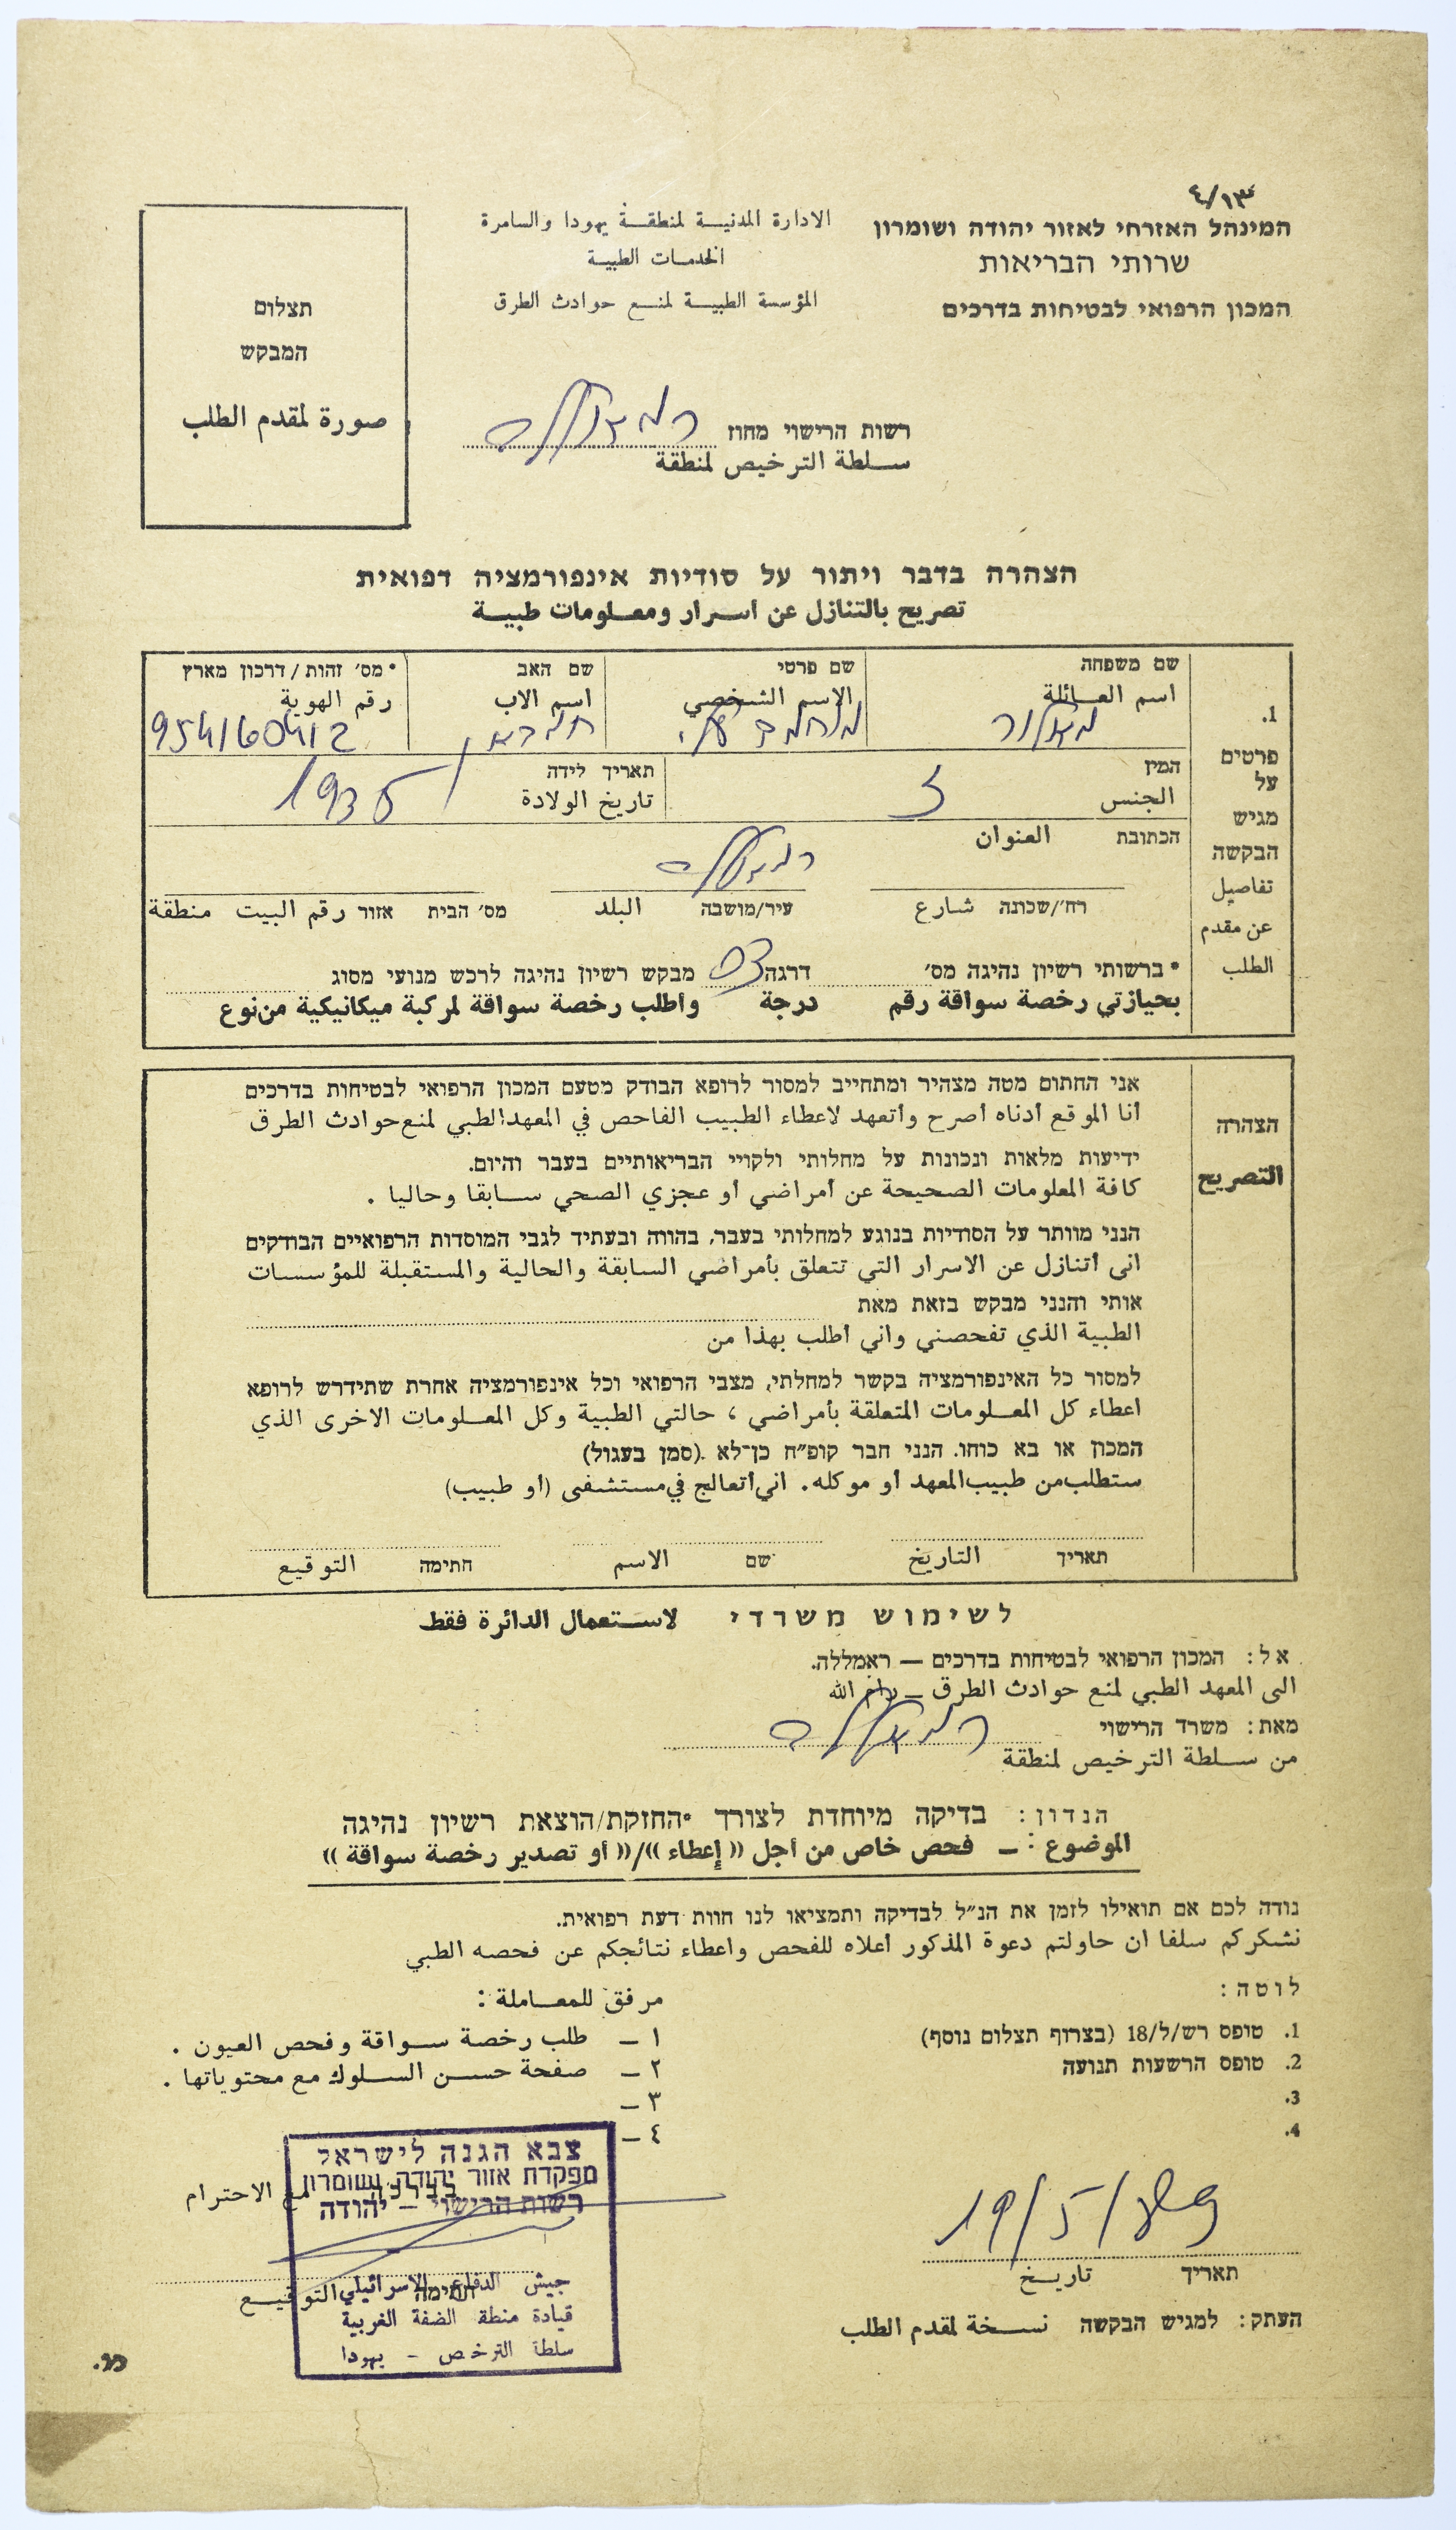 ٤/١٣
המינהל האזרחי לאזור יהודה ושומרון
שרותי הבריאות
המכון הרפואי לבטיחות בדרכים
الادارة المدنيـــة لمنطقـــة يهودا والسامرة
الخدمـات الطبيـة
المؤسسة الطبيـــة لمنـــع حوادث الطرق
תצלום
המבקש
صورة لمقدم الطلب
רשות הרישוי מחוז רמאללה
ســلطة الترخيص لمنطقة
הצהרה בדבר ויתור על סודיות אינפורמציה רפואית
تصريح بالتنازل عن اسـرار ومعـلومات طبيـــة
שם משפחה שם פרטי שם האב *מס׳ זהות/דרכון מארץ
اسم العـــائلة الاسم الشخصي اسم الاب رقم الهوية
954160412
המין תאריך לידה
الجنس ز تاريخ الولادة 1935
הכתובת العنوان
רמאללה
רח׳/שכונה شارع עיר/מושבה البلد מס׳ הבית אזור رقم البيت منطقة
* ברשותי רשיון נהיגה מס׳ דרגה 03 מבקש רשיון נהיגה לרכש מנועי מסוג
بحيازتي رخصة سواقة رقم درجة واطلب رخصة سواقة لمركبة ميكانيكية من نوع
.1
פרטים
על
מגיש
הבקשה
تفاصيل
عن مقدم
الطلب
הצהרה
التصريح
אני החתום מטה מצהיר ומתחייב למסור לרופא הבודק מטעם המכון הרפואי לבטיחות בדרכים
أنا الموقع أدناه أصرح وأتعهد لاعطاء الطبيب الفاحص في المعهد الطبي لمنع حوادث الطرق
ידיעות מלאות ונכונות על מחלותי ולקויי הבריאותיים בעבר והיום.
كافة المعلومات الصحيحة عن أمراضي أو عجزي الصحي ســـابقا وحاليا .
הנני מוותר על הסודיות בנוגע למחלותי בעבר, בהווה ובעתיד לגבי המוסדות הרפואיים הבודקים
انى أتنازل عن الاسرار التي تتعلق بأمراضي السابقة والحالية والمستقبلة للمؤسسات
אותי והנני מבקש בזאת מאת
الطبية الذي تفحصني واني أطلب بهذا من
למסור כל האינפורמציה בקשר למחלתי, מצבי הרפואי וכל אינפורמציה אחרת שתידרש לרופא
اعطاء كل المعـلومات المتعلقة بأمراضي ، حالتي الطبية وكل المعـلومات الاخرى الذي
המכון או בא כוחו. הנני חבר קופ״ח כן־לא .(סמן בעגול)
ستطلب من طبيب المعهد أو موكله . اني أتعالج في مستشفى (أو طبيب)
תאריך التاريخ שם الاسم חתימה التوقيع
לשימוש משרדי لاســـتعمال الدائرة فقط
אל: המכון הרפואי לבטיחות בדרכים — ראמללה.
الى المعهد الطبي لمنع حوادث الطرق — رام الله
מאת: משרד הרישוי רמאללה
من ســـلطة الترخيص لمنطقة
הנדון: בדיקה מיוחדת לצורך *החזקת/הוצאת רשיון נהיגה
الموضوع : — فحص خاص من أجل «إعطاء»/«أو تصدير رخصة سواقة»
נודה לכם אם תואילו לזמן את הנ״ל לבדיקה ותמציאו לנו חוות דעת רפואית.
نشكركم سلفا ان حاولتم دعوة المذكور أعلاه للفحص واعطاء نتائجكم عن فحصه الطبي
לוטה:
.1 טופס רש/ל/18 (בצרוף תצלום נוסף)
.2 טופס הרשעות תנועה
.3
.4
مرفق للمعـــاملة :
١ — طلب رخصة ســـواقة وفحص العيون .
٢ — صفحة حســـن الســـلوك مع محتوياتها .
٣ —
٤ —
בברכה مع الاحترام
צבא הגנה לישראל
מפקדת אזור יהודה ושומרון
רשות הרישוי – יהודה
جيش الدفاع الاسرائيلي
قيادة منطقة الضفة الغربية
سلطة الترخيص – يهودا
חתימה التوقيـــع
19/5/
תאריך تاريـــخ
העתק: למגיש הבקשה نســـخة لمقدم الطلب